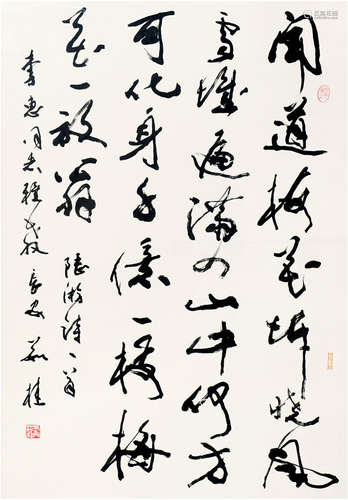 聞道梅花坼曉風
雪堆遍滿四山中何方
可化身千億一樹梅
花一放翁
陸游詩一首
李惠同志雅教長安茹桂